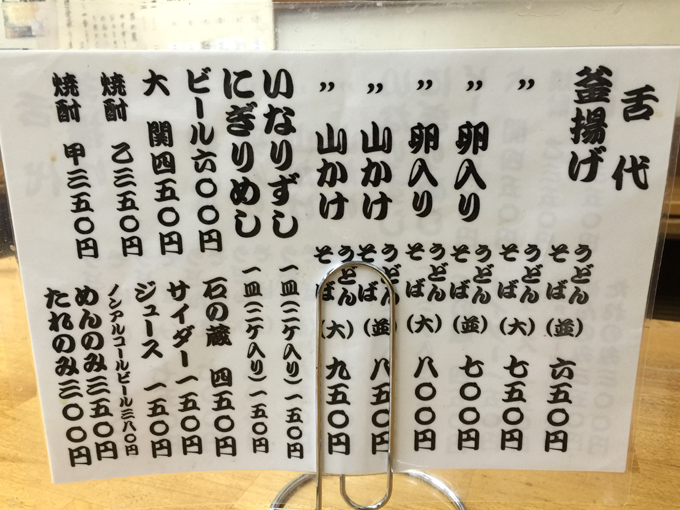 舌代
釜揚げ うどん そば (並) 六五〇円
〃 うどん そば (大) 七五〇円
〃 卵入り うどん そば (並) 七〇〇円
〃 卵入り うどん そば (大) 八〇〇円
〃 山かけ うどん そば (並) 八五〇円
〃 山かけ うどん そば (大) 九五〇円
いなりずし 一皿(二ケ入り)一五〇円
にぎりめし 一皿(二ケ入り)一五〇円
ビール六〇〇円 石の蔵 四五〇円
大関四五〇円 サイダー一五〇円
ジュース 一五〇円
焼酎 乙三五〇円 ノンアルコールビール三八〇円
めんのみ三五〇円
焼酎 甲三五〇円 たれのみ三〇〇円